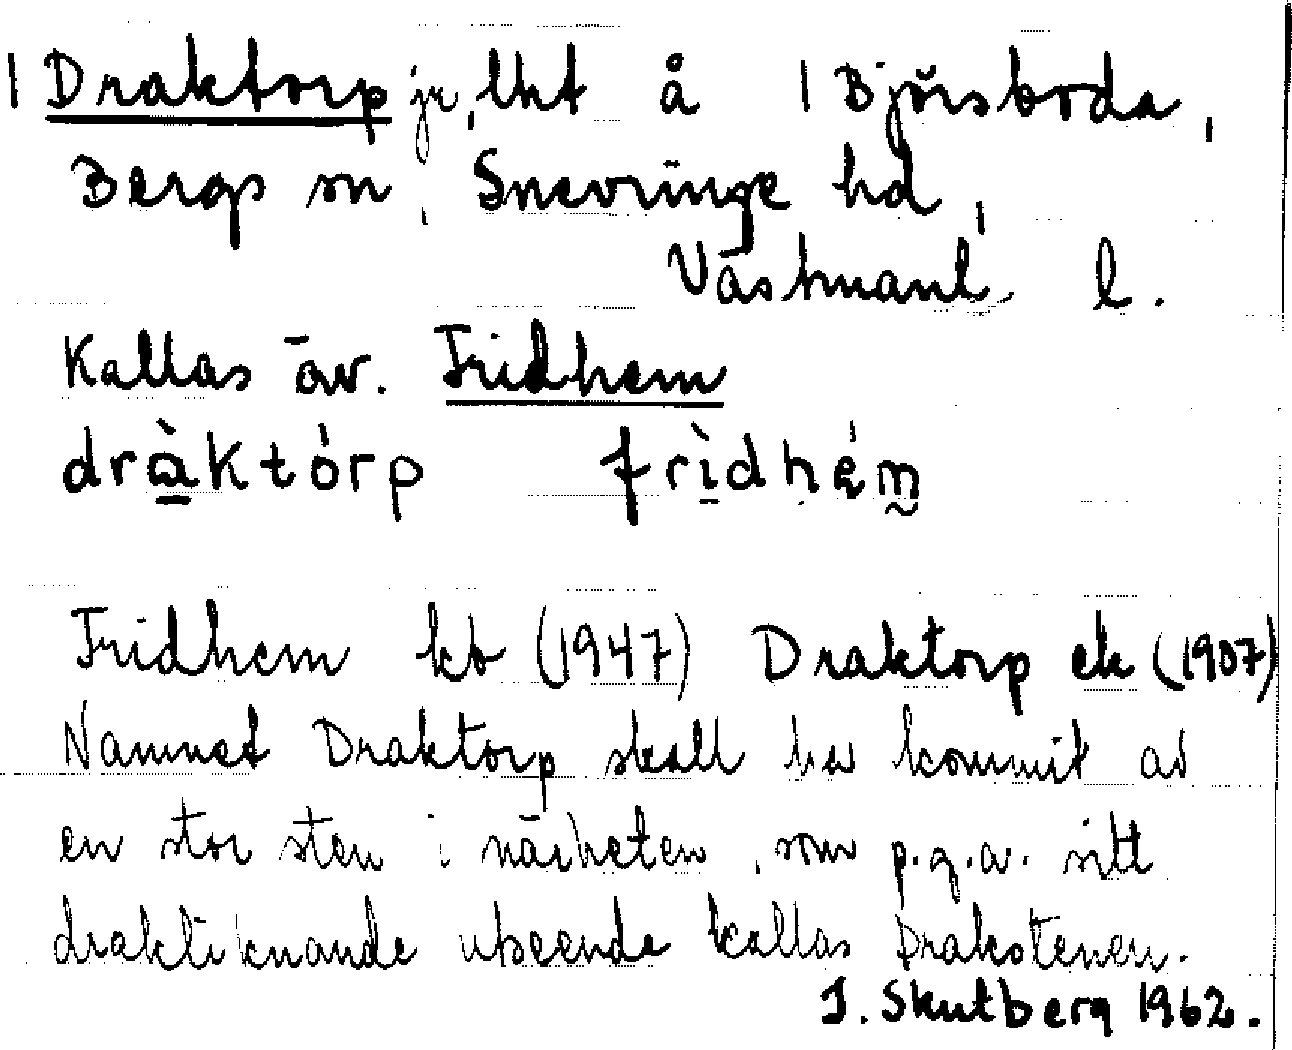 | Draktorp jr, lht å | Björsboda,
Bergs sn, Snevringe hd,
Västmanl. l.
Kallas äv. Fridhem
dràktórp frìdhém
Fridhem kb (1947) Draktorp ek (1907)
Namnet Draktorp skall ha kommit av
en stor sten i närheten, som p.g.a. sitt
drakliknande utseende kallas Drakstenen.
I. Skutberg 1962.